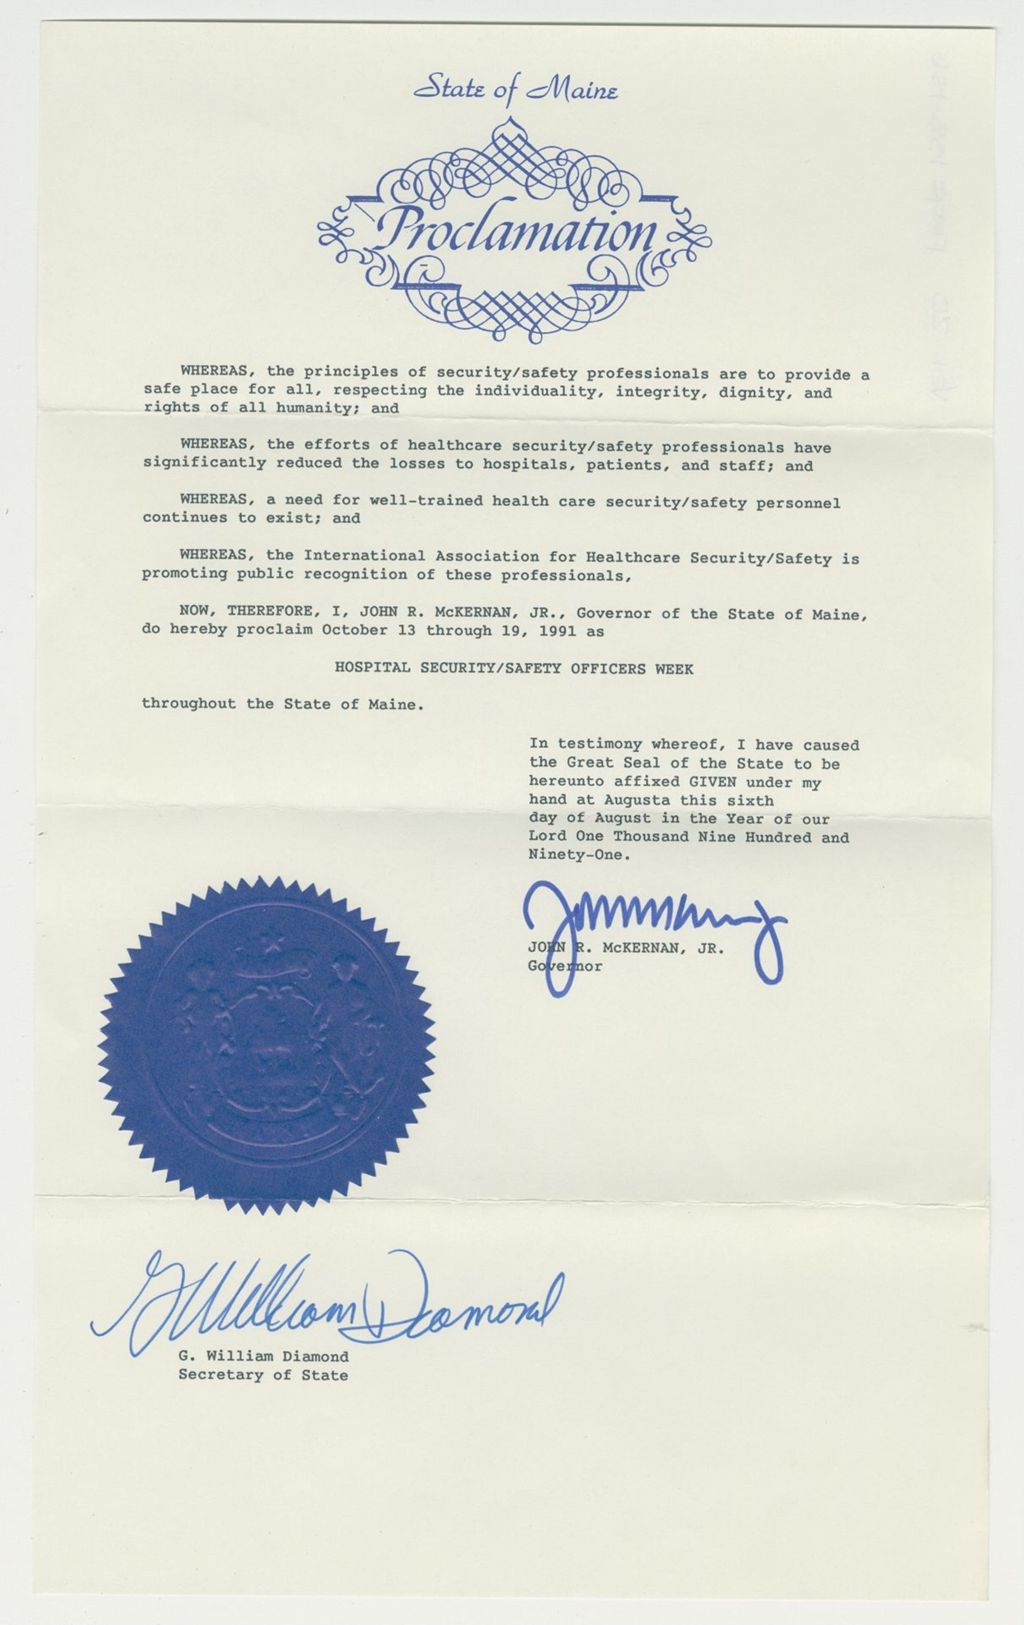 State of Maine
Proclamation
WHEREAS, the principles of security/safety professionals are to provide a
safe place for all, respecting the individuality, integrity, dignity, and
rights of all humanity; and
WHEREAS, the efforts of healthcare security/safety professionals have
significantly reduced the losses to hospitals, patients, and staff; and
WHEREAS, a need for well-trained health care security/safety personnel
continues to exist; and
WHEREAS, the International Association for Healthcare Security/Safety is
promoting public recognition of these professionals,
NOW, THEREFORE, I, JOHN R. McKERNAN, JR., Governor of the State of Maine,
do hereby proclaim October 13 through 19, 1991 as
HOSPITAL SECURITY/SAFETY OFFICERS WEEK
throughout the State of Maine.
In testimony whereof, I have caused
the Great Seal of the State to be
hereunto affixed GIVEN under my
hand at Augusta this sixth
day of August in the Year of our
Lord One Thousand Nine Hundred and
Ninety-One.
JOHN R. McKERNAN, JR.
Governor
G William Diamond
G. William Diamond
Secretary of State